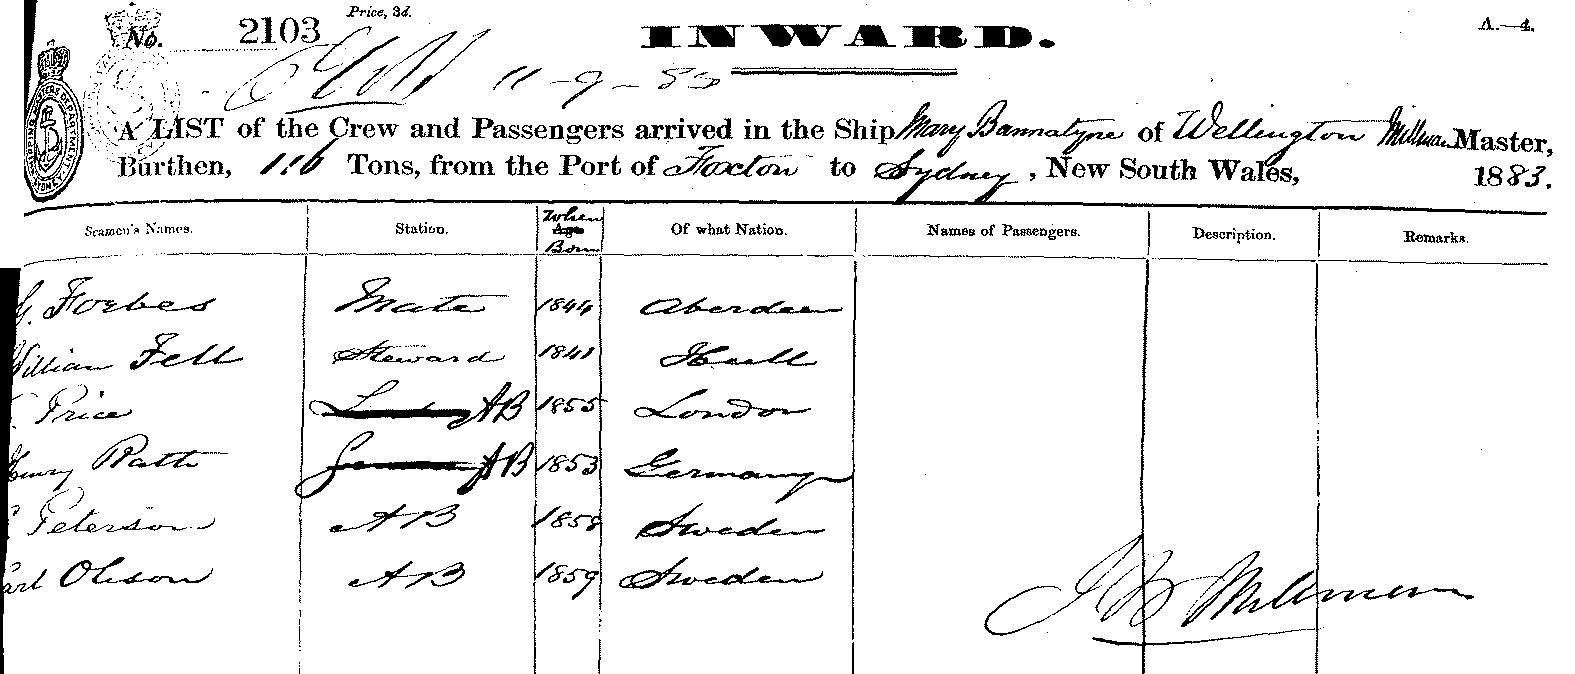 No. 2103 Price, 3d. INWARD. A.—4.
11-9-83
A LIST of the Crew and Passengers arrived in the Ship Mary Bannatyne of Wellington Millman Master,
Burthen, 110 Tons, from the Port of Foxton to Sydney, New South Wales, 1883.
Seamen's Names. Station. When Age Born Of what Nation. Names of Passengers. Description. Remarks.
G. Forbes Mate 1844 Aberdeen
William Fell Steward 1841 Hull
Price AB 1855 London
Henry Ratts AB 1853 Germany
Peterson AB 1858 Sweden
Carl Oleson AB 1859 Sweden
J B Millman